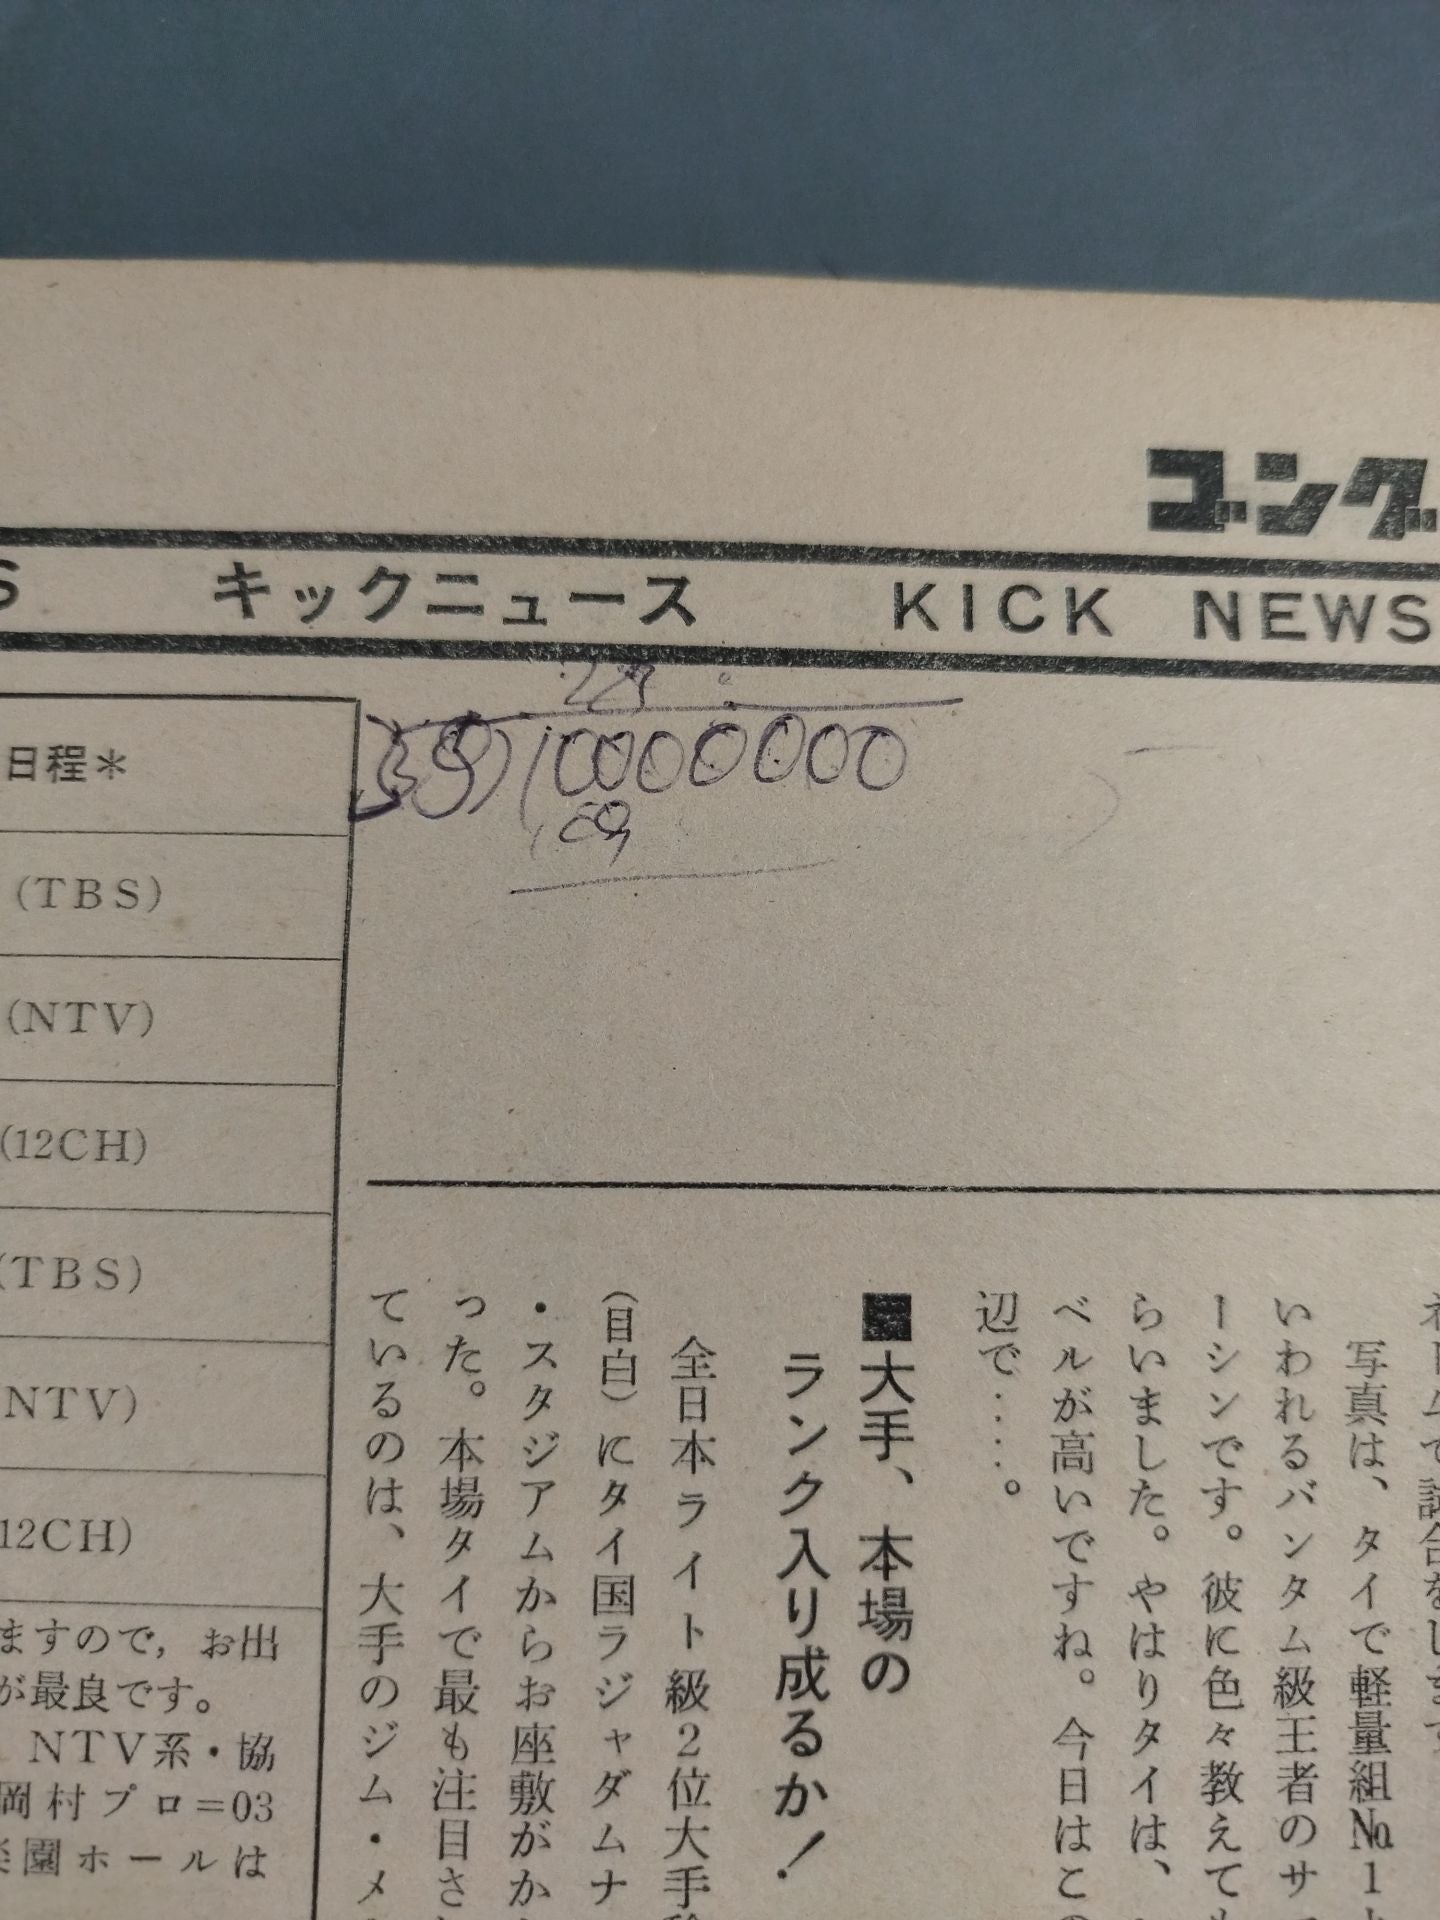 ゴング
S キックニュース KICK NEWS
10000000
日程＊
(TBS)
(NTV)
(12CH)
(TBS)
NTV)
12CH)
ますので，お出
が最良です。
NTV系・協
岡村プロ＝03
園ホールは
写真は、タイで軽量組№1と
いわれるバンタム級王者のサ
ーシンです。彼に色々教えても
らいました。やはりタイは、
ベルが高いですね。今日はこの
辺で……。
■大手、本場の
ランク入り成るか！
全日本ライト級2位大手
（目白）にタイ国ラジャダムナ
・スタジアムからお座敷がか
った。本場タイで最も注目さ
ているのは、大手のジム・メ